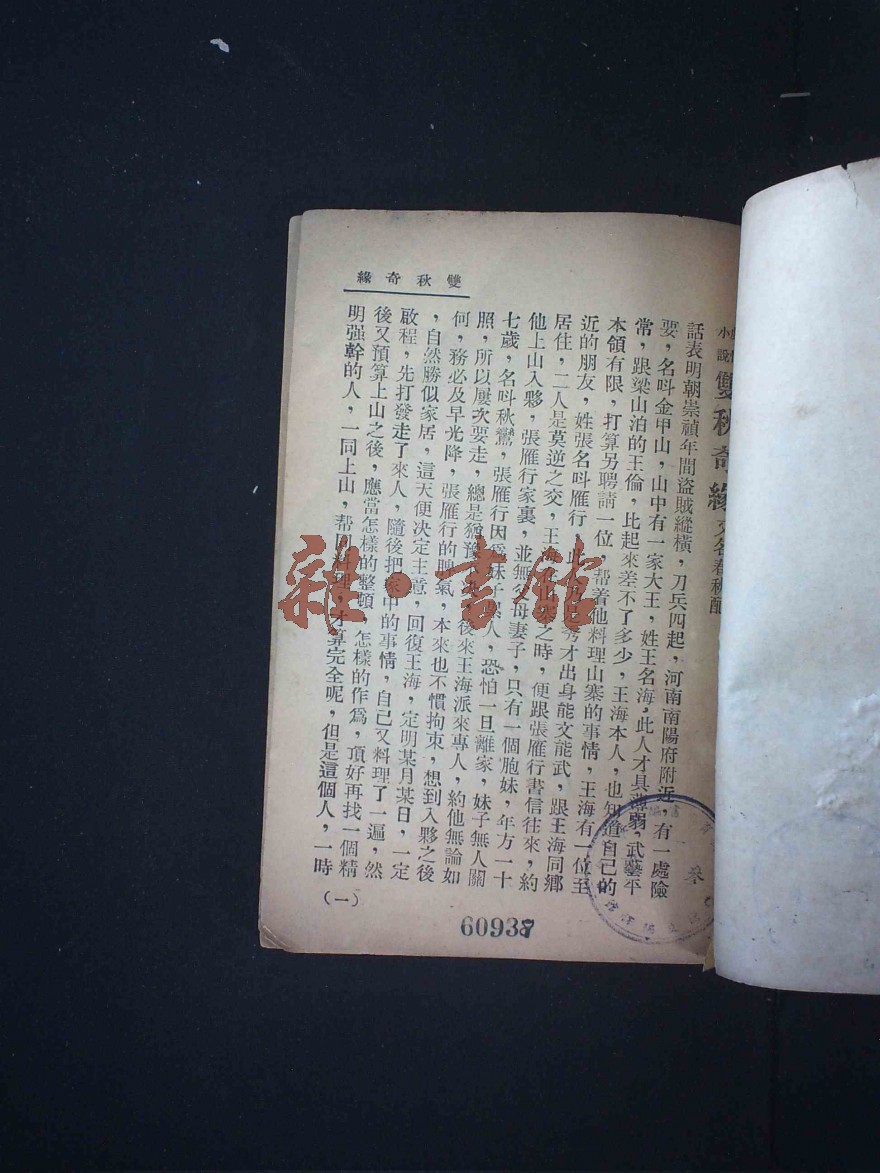 雙秋奇緣
小說 雙秋奇緣 又名春秋配
話表明朝崇禎年間盜賊縱橫，刀兵四起，河南南陽府附近，有一處險
要，名呌金甲山，山中有一家大王，姓王名海，此人才具薄弱，武藝平
常，跟梁山泊的王倫，比起來差不了多少，王海本人，也知道自己的
本領有限，打算另聘請一位，帮着他料理山寨的事情，王海有一位至
近的朋友，姓張名呌雁行，此人秀才出身能文能武，跟王海同鄉
居住，二人是莫逆之交，王海之時，便跟張雁行書信往來，約
他上山入夥，張雁行家裏，並無父母妻子，只有一個胞妹，年方一十
七歲，名呌秋鸞，張雁行因爲妹子累人，恐怕一旦離家，妹子無人關
照，所以屢次要走，總是猶豫後來王海派來專人，約他無論如
何，務必及早光降，張雁行的脾氣，本來也不慣拘束，想到入夥之後
，自然勝似家居，這天便决定主意，回復王海，定明某月某日，一定
啟程，先打發走了來人，隨後把家中的事情，自己又料理了一遍，然
後又預算上山之後，應當怎樣的整頓，怎樣的作爲，頂好再找一個精
明强幹的人，一同上山，帮同料理，才算完全呢，但是這個人，一時
（一）
60938
雜·書館